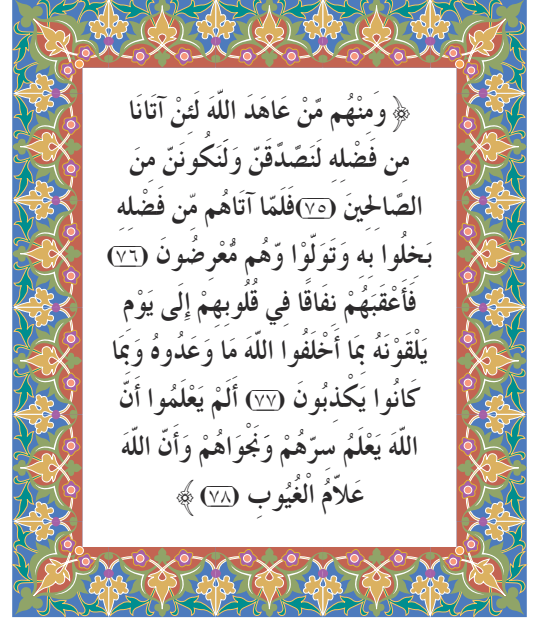 ﴿ وَمِنْهُم مّنْ عَاهَدَ اللّهَ لَئِنْ آتَانَا
مِن فَضْلِهِ لَنَصّدّقَنّ وَلَنَكُونَنّ مِنَ
الصّالِحِينَ (٧٥)فَلَمّا آتَاهُم مّن فَضْلِهِ
بَخِلُوا بِهِ وَتَوَلّوْا وّهُم مُّعْرِضُونَ (٧٦)
فَأَعْقَبَهُمْ نِفَاقًا فِي قُلُوبِهِمْ إِلَى يَوْمِ
يَلْقَوْنَهُ بِمَا أَخْلَفُوا اللّهَ مَا وَعَدُوهُ وَبِمَا
كَانُوا يَكْذِبُونَ (٧٧) أَلَمْ يَعْلَمُوا أَنّ
اللّهَ يَعْلَمُ سِرّهُمْ وَنَجْوَاهُمْ وَأَنّ اللّهَ
عَلاّمُ الْغُيُوبِ (٧٨) ﴾